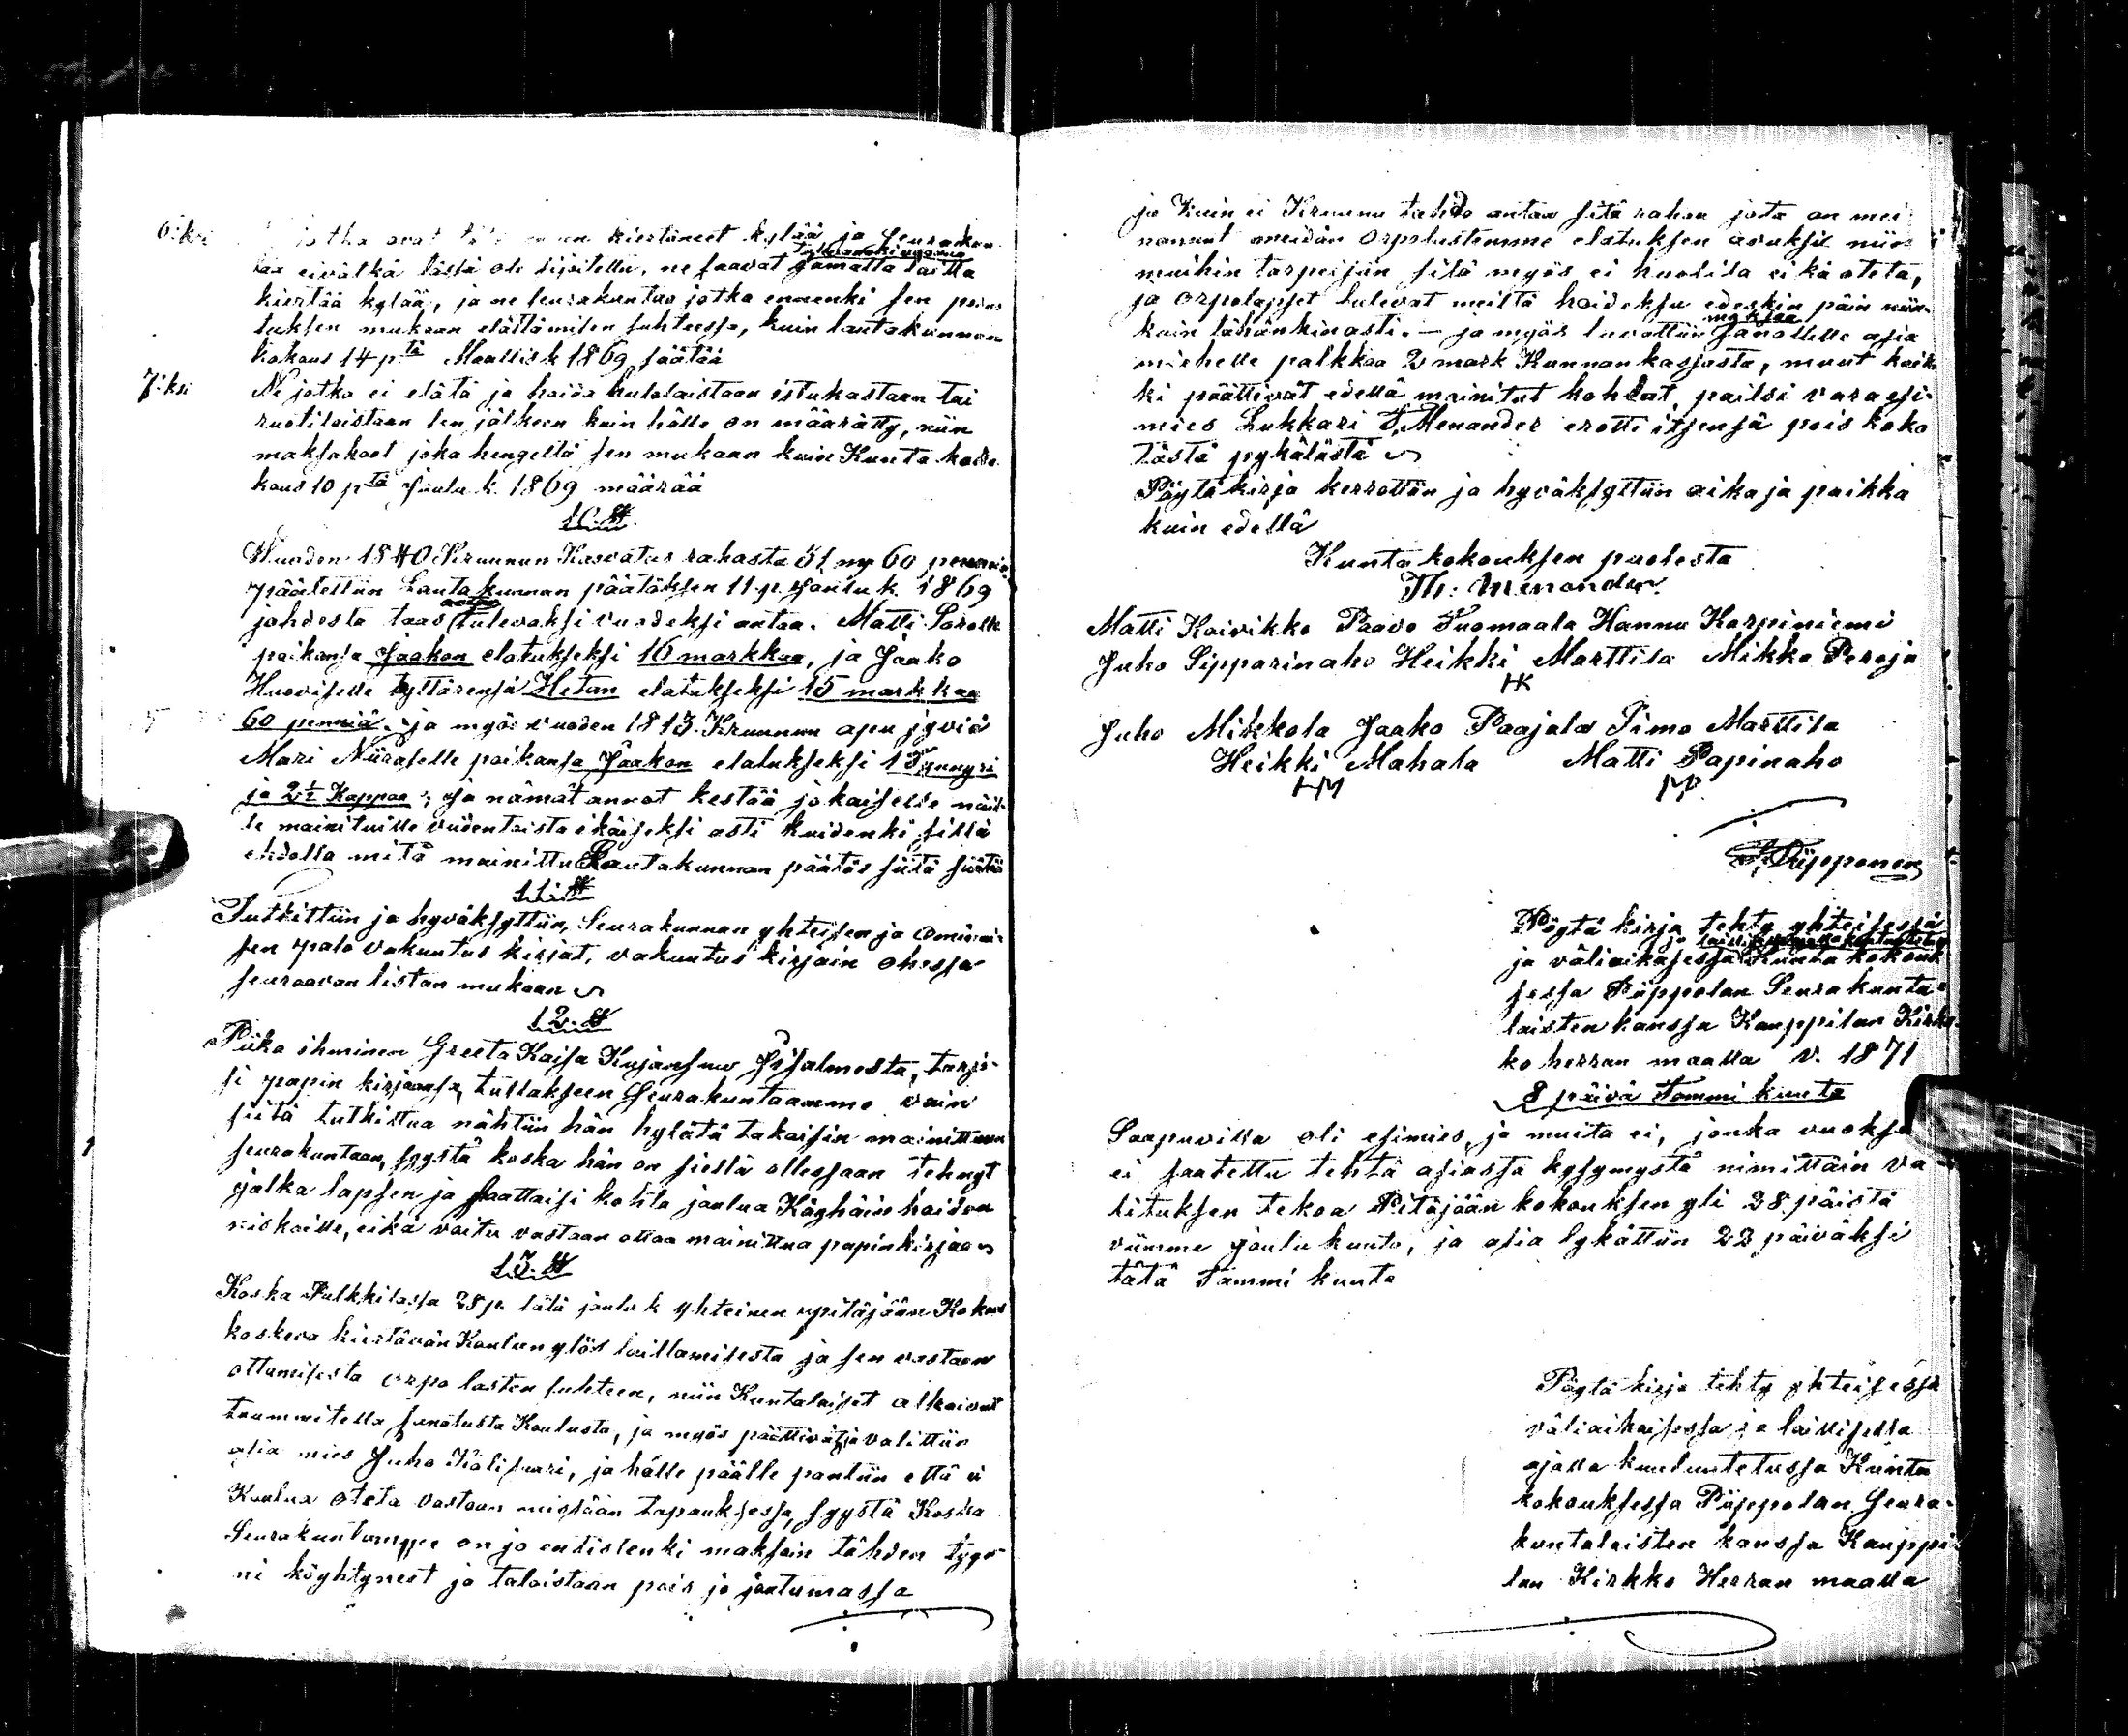 6:ksi jotka ovat kiertäneet kylää ja Seurakun-
taa eivätkä tästä ole sijoitettu, ne saavat samalla lailla
kiertää kylää, ja ne seurakuntaa jotka ennenki sen
tuksen mukaan elättämisen suhteessa, kuin lautakunnan
kokous 14 p:tä Maalisk 1869 säätää
7:ksi Ne jotka ei elätä ja hoida hulolaistaan istukastaan tai
ruotilaistaan sen jälkeen kuin hälle on määrätty, niin
maksakoot joka hengeltä sen mukaan kuin Kunta koko
kous 10 p:tä Joulu k. 1869 määrää
10. §
Vuoden 1840 Kruunun Kasvatus rahasta 31 mr 60 penniä
päätettiin Lautakunnan päätöksen 11 p. Joulu k. 1869
johdosta taas tulevaksi vuodeksi antaa. Matti
poikansa Jaakon elatukseksi 16 markkaa, ja Jaako
Huoviselle tyttärensä Hetan elatukseksi 15 markkaa
60 penniä. ja myös vuoden 1813 Kruunun apu jyviä
Mari Niiraselle poikansa Jaakon elatukseksi 1 Tynnyri
ja 2½ Kappaa; Ja nämät annot kestää jokaiselle näil-
le mainituille viidentoista ikäiseksi asti kuidenki sillä
ehdolla mitä mainittu Lautakunnan päätös siitä säätää
11. §
Tutkittiin ja hyväksyttiin, Seurakunnan yhteisen ja ominai-
sen palo vakuutus kirjat, vakuutus kirjain ohessa
seuraavan listan mukaan
12. §
Piika ihminen Greeta Kaisa Kujansuu Iisalmesta, tarjo-
si papin kirjaansa tullakseen Seurakuntaamme vain
siitä tutkittua nähtiin hän hylätä takaisin mainittuun
seurakuntaan, syystä koska hän on siellä ollessaan tehnyt
jalka lapsen ja saattaisi kohta joulua Käyhäin hoidon
niskoille, eikä voitu vastaan ottaa mainittua papinkirjaa
13. §
Koska Pulkkilassa 28 p. tätä joulu k yhteinen pitäjään Kokous
koskeva kiertävän Koulun ylös laittamisesta ja sen vastaan
ottamisesta orpo lasten suhteen, niin Kuntalaiset alkoivat
tuummitella sanotusta Koulusta, ja myös päättivät ja valittiin
asia mies Juho Kälisaari, ja hälle päälle pantiin että ei
Koulua oteta vastaan missään tapauksessa, syystä Koska
Seurakuntamme on jo entistenki maksoin tähden tygö-
ni köyhtyneet ja taloistaan pois jo joutumassa
ja kuin ei Kruunu tahdo antaa sitä rahaa jota on mei
nannut meidän Orpolastemme elatuksen avuksi niin
muihin tarpeisiin sitä myös ei huolita eikä oteta,
ja Orpolapset tulevat meiltä hoideksu edeskin päin niin-
kuin tähänkin asti. – ja myös luvattiin maksaa Sanotulle asia
miehelle palkkaa 2 mark Kunnan kassasta, muut kaik-
ki päättivät edellä mainitut kohdat, paitsi vara esi-
mies Lukkari T. Menander erotti itsensä pois koko
tästä pykälästä
Pöytäkirja kerrottiin ja hyväksyttiin aika ja paikka
kuin edellä
Kunta kokouksen puolesta
Th: Menander.
Matti Koivikko Paavo Tuomaala Hannu Karpiniemi
Juho Sipparinaho Heikki Marttila Mikko Peroja
HK
Juho Mikkola Jaako Paajala Simo Marttila
Heikki Mahala Matti Papinaho
HM MP
Piipponen
Pöytä kirja tehty yhteisessä
ja väliaikasessa Kunta kokouk
sessa Piippolan Seurakunta-
laisten kanssa Kauppilan Kirk-
ko herran maalla v. 1871
8 päivä Tammi kuuta
Saapuvilla oli esimies, ja muita ei, jonka vuoksi
ei saatettu tehtä asiassa kysymystä nimittäin Va
lituksen tekoa Pitäjään kokouksen yli 28 päistä
viimme joulu kuuta, ja asia lykättiin 22 päiväksi
tätä Tammi kuuta
Pöytä kirja tehty yhteisessä
väliaikaisessa ja laillisella
ajalla kuuluutetussa Kunta
kokouksessa Piippolan Seura-
kuntalaisten kanssa Kauppi-
lan Kirkko Herran maalla